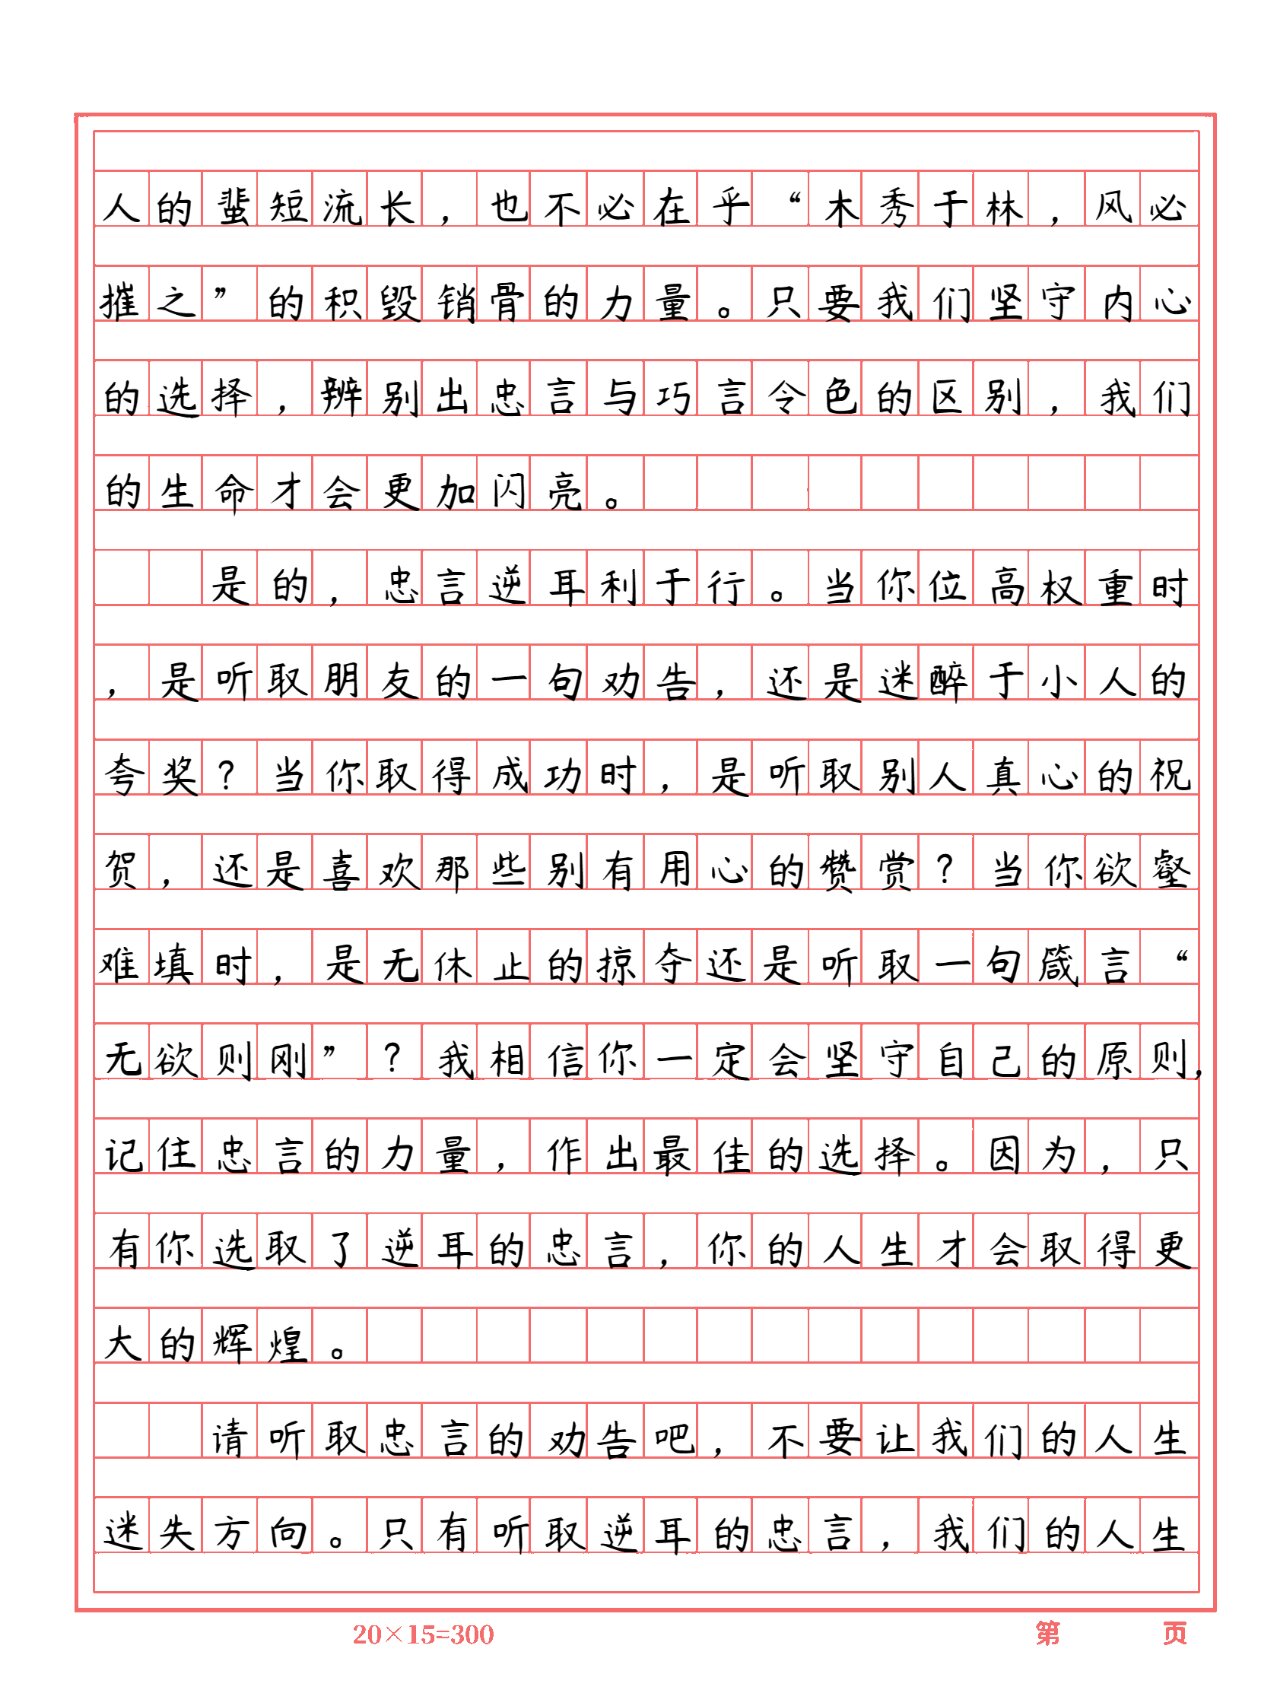 人的蜚短流长，也不必在乎“木秀于林，风必
摧之”的积毁销骨的力量。只要我们坚守内心
的选择，辨别出忠言与巧言令色的区别，我们
的生命才会更加闪亮。
是的，忠言逆耳利于行。当你位高权重时
，是听取朋友的一句劝告，还是迷醉于小人的
夸奖？当你取得成功时，是听取别人真心的祝
贺，还是喜欢那些别有用心的赞赏？当你欲壑
难填时，是无休止的掠夺还是听取一句箴言“
无欲则刚”？我相信你一定会坚守自己的原则，
记住忠言的力量，作出最佳的选择。因为，只
有你选取了逆耳的忠言，你的人生才会取得更
大的辉煌。
请听取忠言的劝告吧，不要让我们的人生
迷失方向。只有听取逆耳的忠言，我们的人生
20×15=300 第 页